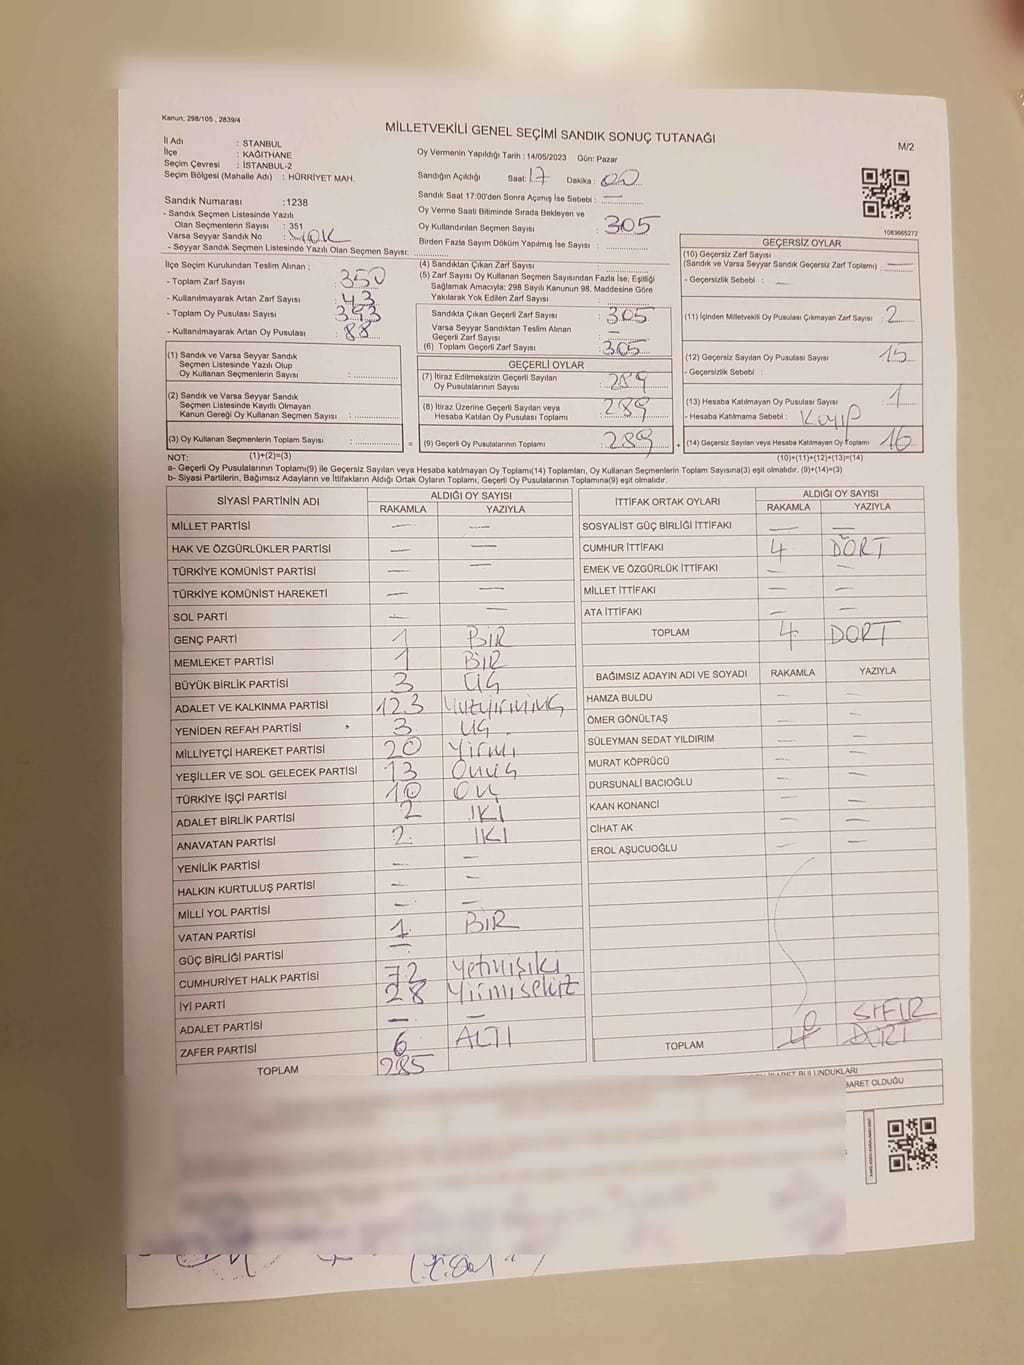 Kanun; 298/105 , 2839/4
MİLLETVEKİLİ GENEL SEÇİMİ SANDIK SONUÇ TUTANAĞI
M/2
İl Adı : STANBUL
İlçe : KAĞITHANE
Seçim Çevresi : İSTANBUL-2
Seçim Bölgesi (Mahalle Adı) : HÜRRİYET MAH.
Oy Vermenin Yapıldığı Tarih : 14/05/2023 Gün: Pazar
Sandığın Açıldığı Saat: 17 Dakika : 00
Sandık Saat 17:00'den Sonra Açımış İse Sebebi : —
Sandık Numarası :1238
- Sandık Seçmen Listesinde Yazılı
Olan Seçmenlerin Sayısı : 351
Varsa Seyyar Sandık No : YOK
- Seyyar Sandık Seçmen Listesinde Yazılı Olan Seçmen Sayısı:
Oy Verme Saati Bitiminde Sırada Bekleyen ve
Oy Kullandırılan Seçmen Sayısı : 305
Birden Fazla Sayım Döküm Yapılmış İse Sayısı :
1083665272
İlçe Seçim Kurulundan Teslim Alınan ;
- Toplam Zarf Sayısı : 350
- Kullanılmayarak Artan Zarf Sayısı : 43
- Toplam Oy Pusulası Sayısı : 393
- Kullanılmayarak Artan Oy Pusulası : 88
(1) Sandık ve Varsa Seyyar Sandık
Seçmen Listesinde Yazılı Olup
Oy Kullanan Seçmenlerin Sayısı :
(2) Sandık ve Varsa Seyyar Sandık
Seçmen Listesinde Kayıtlı Olmayan
Kanun Gereği Oy Kullanan Seçmen Sayısı :
(3) Oy Kullanan Seçmenlerin Toplam Sayısı : =
(4) Sandıktan Çıkan Zarf Sayısı :
(5) Zarf Sayısı Oy Kullanan Seçmen Sayısından Fazla İse, Eşitliği
Sağlamak Amacıyla; 298 Sayılı Kanunun 98. Maddesine Göre
Yakılarak Yok Edilen Zarf Sayısı :
Sandıkta Çıkan Geçerli Zarf Sayısı : 305
Varsa Seyyar Sandıktan Teslim Alınan
Geçerli Zarf Sayısı : —
(6) Toplam Geçerli Zarf Sayısı : 305
GEÇERLİ OYLAR
(7) İtiraz Edilmeksizin Geçerli Sayılan
Oy Pusulalarının Sayısı : 289
(8) İtiraz Üzerine Geçerli Sayılan veya
Hesaba Katılan Oy Pusulası Toplamı : 289
(9) Geçerli Oy Pusulalarının Toplamı : 289 +
GEÇERSİZ OYLAR
(10) Geçersiz Zarf Sayısı
(Sandık ve Varsa Seyyar Sandık Geçersiz Zarf Toplamı) : —
- Geçersizlik Sebebi : —
(11) İçinden Milletvekili Oy Pusulası Çıkmayan Zarf Sayısı : 2
(12) Geçersiz Sayılan Oy Pusulası Sayısı : 15
- Geçersizlik Sebebi :
(13) Hesaba Katılmayan Oy Pusulası Sayısı : 1
- Hesaba Katılmama Sebebi : Kayıp
(14) Geçersiz Sayılan veya Hesaba Katılmayan Oy Toplamı : 16
NOT: (1)+(2)=(3)
(10)+(11)+(12)+(13)=(14)
a- Geçerli Oy Pusulalarının Toplamı(9) ile Geçersiz Sayılan veya Hesaba katılmayan Oy Toplamı(14) Toplamları, Oy Kullanan Seçmenlerin Toplam Sayısına(3) eşit olmalıdır. (9)+(14)=(3)
b- Siyasi Partilerin, Bağımsız Adayların ve İttifakların Aldığı Ortak Oyların Toplamı, Geçerli Oy Pusulalarının Toplamına(9) eşit olmalıdır.
SİYASİ PARTİNİN ADI ALDIĞI OY SAYISI
RAKAMLA YAZIYLA
MİLLET PARTİSİ — —
HAK VE ÖZGÜRLÜKLER PARTİSİ — —
TÜRKİYE KOMÜNİST PARTİSİ — —
TÜRKİYE KOMÜNİST HAREKETİ — —
SOL PARTİ — —
GENÇ PARTİ 1 BİR
MEMLEKET PARTİSİ 1 BİR
BÜYÜK BİRLİK PARTİSİ 3 ÜÇ
ADALET VE KALKINMA PARTİSİ 123
YENİDEN REFAH PARTİSİ 3 ÜÇ
MİLLİYETÇİ HAREKET PARTİSİ 20 Yirmi
YEŞİLLER VE SOL GELECEK PARTİSİ 13 Onüç
TÜRKİYE İŞÇİ PARTİSİ 10
ADALET BİRLİK PARTİSİ 2 İKİ
ANAVATAN PARTİSİ 2 İKİ
YENİLİK PARTİSİ — —
HALKIN KURTULUŞ PARTİSİ — —
MİLLİ YOL PARTİSİ — —
VATAN PARTİSİ 1 BİR
GÜÇ BİRLİĞİ PARTİSİ —
CUMHURİYET HALK PARTİSİ 72 Yetmişiki
İYİ PARTİ 28 Yirmisekiz
ADALET PARTİSİ — —
ZAFER PARTİSİ 6 ALTI
TOPLAM 285
İTTİFAK ORTAK OYLARI ALDIĞI OY SAYISI
RAKAMLA YAZIYLA
SOSYALİST GÜÇ BİRLİĞİ İTTİFAKI — —
CUMHUR İTTİFAKI 4 DÖRT
EMEK VE ÖZGÜRLÜK İTTİFAKI — —
MİLLET İTTİFAKI — —
ATA İTTİFAKI — —
TOPLAM 4 DORT
BAĞIMSIZ ADAYIN ADI VE SOYADI RAKAMLA YAZIYLA
HAMZA BULDU — —
ÖMER GÖNÜLTAŞ — —
SÜLEYMAN SEDAT YILDIRIM — —
MURAT KÖPRÜCÜ — —
DURSUNALİ BACIOĞLU — —
KAAN KONANCİ — —
CİHAT AK — —
EROL AŞUCUOĞLU — —
TOPLAM 0 SIFIR
BULUNDUKLARI
BARET OLDUĞU